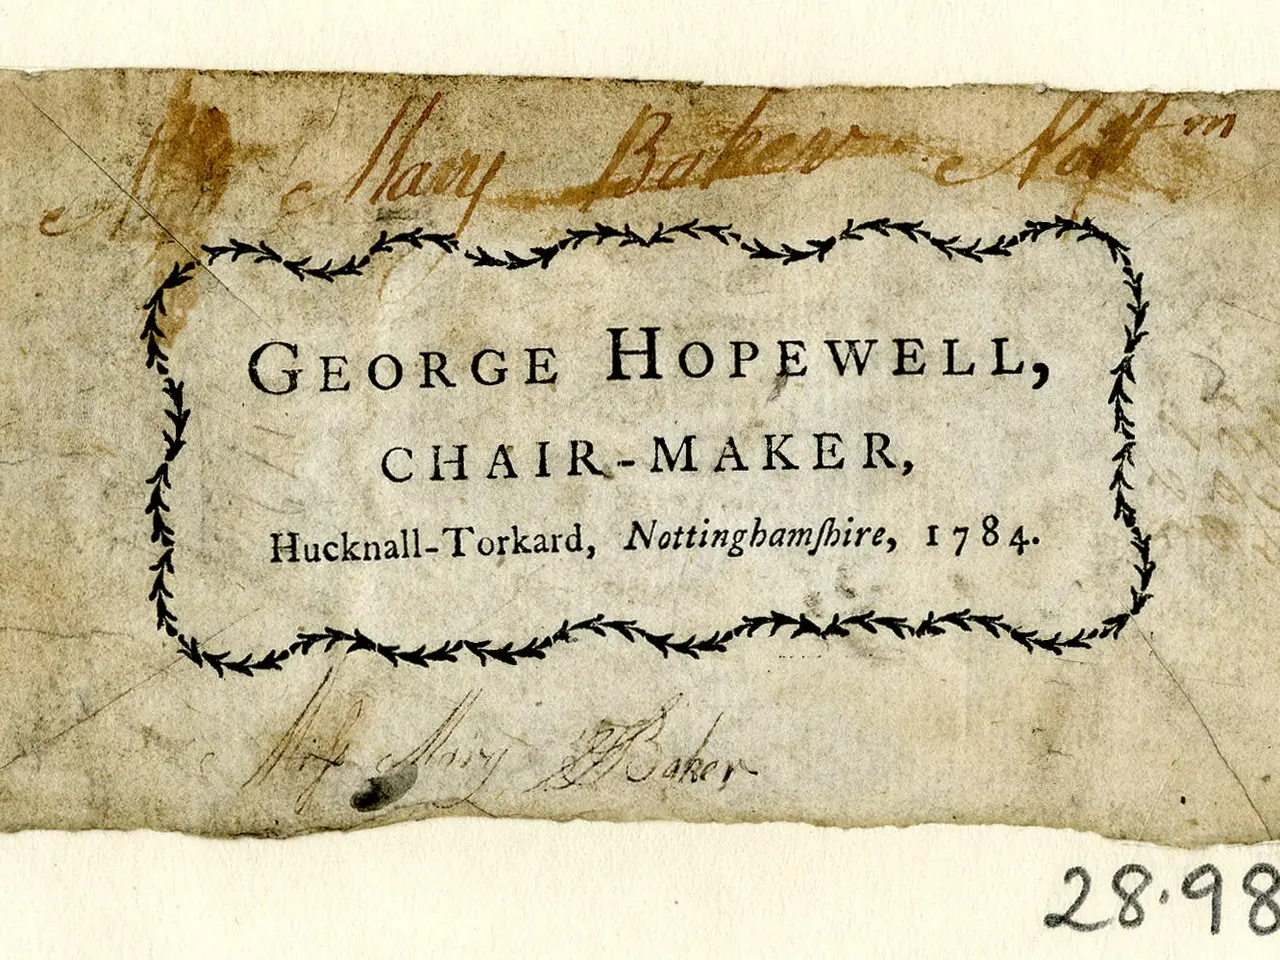 Miſs Mary Baker Nottm
GEORGE HOPEWELL,
CHAIR-MAKER,
Hucknall-Torkard, Nottinghamſhire, 1784.
Miſs Mary Baker
28.98